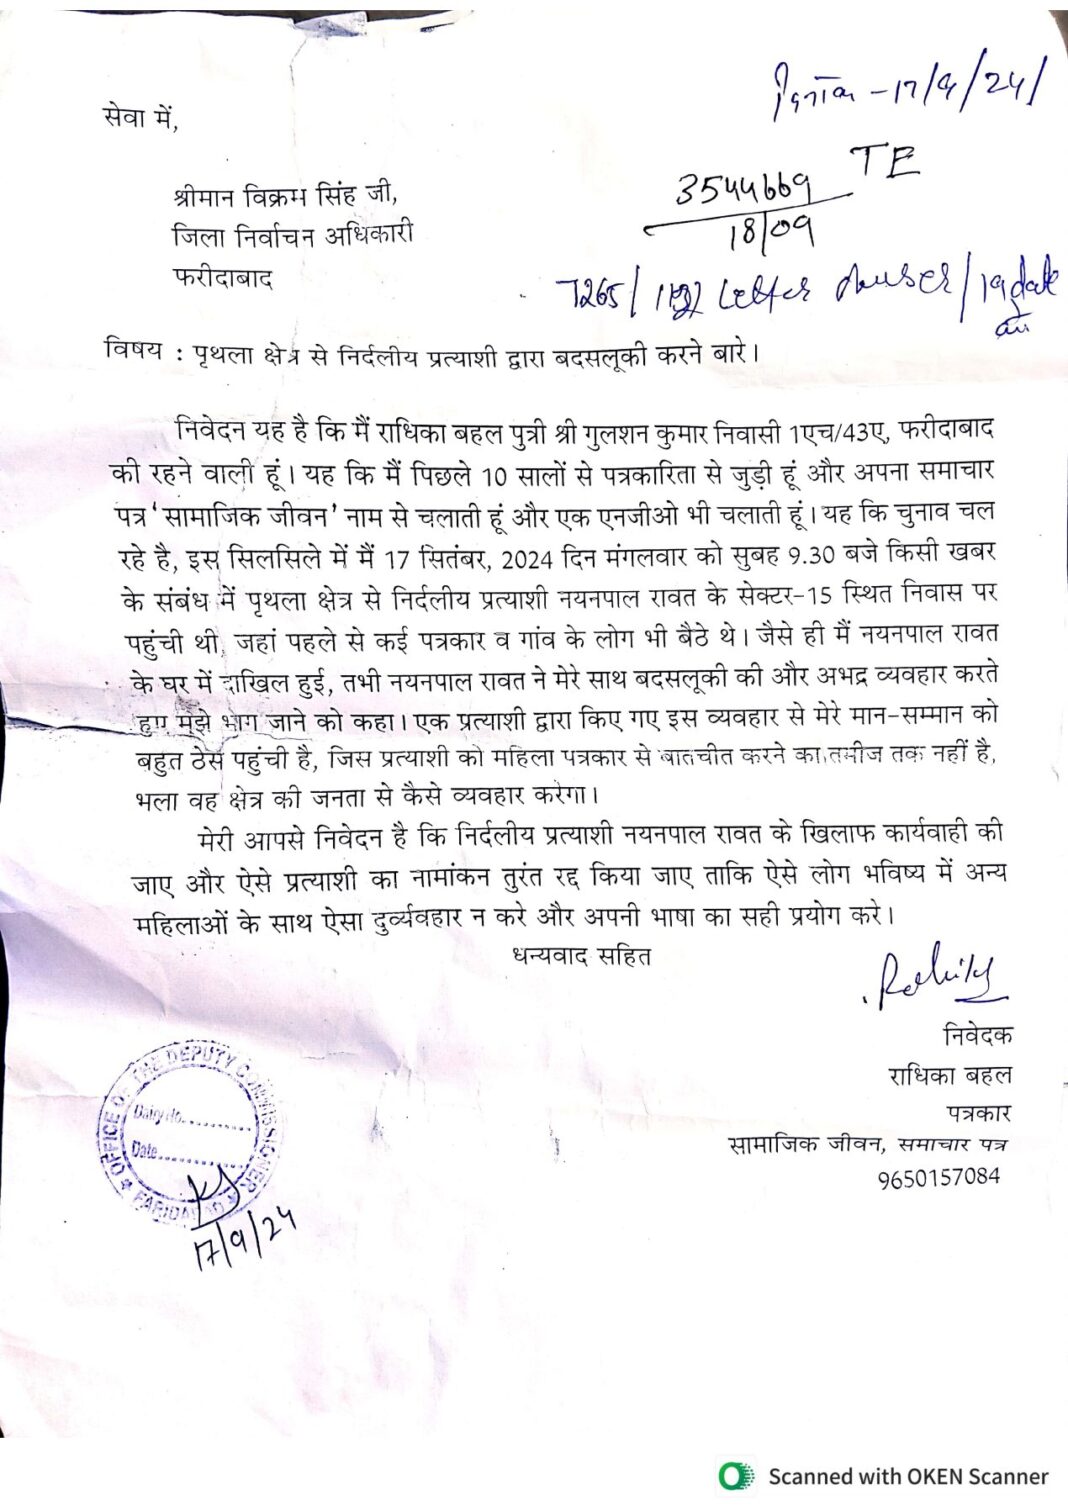 दिनांक - 17/9/24
सेवा में,
TE
3544669
18/09
श्रीमान विक्रम सिंह जी,
जिला निर्वाचन अधिकारी
फरीदाबाद
7265/ Letter
विषय : पृथला क्षेत्र से निर्दलीय प्रत्याशी द्वारा बदसलूकी करने बारे।
निवेदन यह है कि मैं राधिका बहल पुत्री श्री गुलशन कुमार निवासी 1एच/43ए, फरीदाबाद
की रहने वाली हूं। यह कि मैं पिछले 10 सालों से पत्रकारिता से जुड़ी हूं और अपना समाचार
पत्र 'सामाजिक जीवन' नाम से चलाती हूं और एक एनजीओ भी चलाती हूं। यह कि चुनाव चल
रहे है, इस सिलसिले में मैं 17 सितंबर, 2024 दिन मंगलवार को सुबह 9.30 बजे किसी खबर
के संबंध में पृथला क्षेत्र से निर्दलीय प्रत्याशी नयनपाल रावत के सेक्टर-15 स्थित निवास पर
पहुंची थी, जहां पहले से कई पत्रकार व गांव के लोग भी बैठे थे। जैसे ही मैं नयनपाल रावत
के घर में दाखिल हुई, तभी नयनपाल रावत ने मेरे साथ बदसलूकी की और अभद्र व्यवहार करते
हुए मुझे भाग जाने को कहा। एक प्रत्याशी द्वारा किए गए इस व्यवहार से मेरे मान-सम्मान को
बहुत ठेस पहुंची है, जिस प्रत्याशी को महिला पत्रकार से बातचीत करने का तमीज तक नहीं है,
भला वह क्षेत्र की जनता से कैसे व्यवहार करेगा।
मेरी आपसे निवेदन है कि निर्दलीय प्रत्याशी नयनपाल रावत के खिलाफ कार्यवाही की
जाए और ऐसे प्रत्याशी का नामांकन तुरंत रद्द किया जाए ताकि ऐसे लोग भविष्य में अन्य
महिलाओं के साथ ऐसा दुर्व्यवहार न करे और अपनी भाषा का सही प्रयोग करे।
धन्यवाद सहित
निवेदक
राधिका बहल
पत्रकार
सामाजिक जीवन, समाचार पत्र
9650157084
OFFICE OF THE DEPUTY COMMISSIONER
FARIDABAD
Dairy No..............
Date..............
17/9/24
Scanned with OKEN Scanner